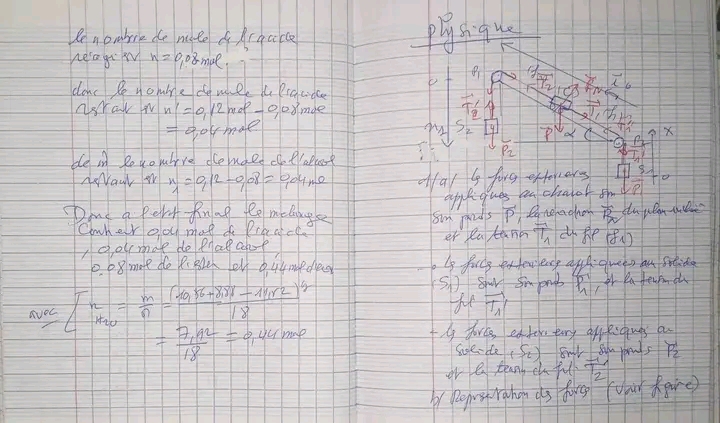 le nombre de mole de l'acide
réagi est n = 0,08 mol.
donc le nombre de mole de l'acide
restant est n' = 0,12 mol - 0,08 mol
= 0,04 mol
de m̂ le nombre de mole de l'alcool
restant est n₁ = 0,12 - 0,08 = 0,04 mol
Donc à l'état final le mélange
Contient 0,04 mol de l'acide
, 0,04 mol de l'alcool
0,08 mol de l'ester et 0,44 mol d'eau
avec n H2O = m/M = (10,36+8,88-11,32)/18
= 7,92/18 = 0,44 mol
physique
P₁
S₂
P₂
α
C
x
o
S₁
1/a/ les forces extérieures
appliquées au chariot sont
son poids P, la réaction R_N du plan incliné
et la tension T₁ du fil (f₁)
- les forces extérieures appliquées au solide
(S₁) sont son poids P₁', et la tension du
fil T₁'
- les forces extérieures appliquées au
solide (S₂) sont son poids P₂
et la tension du fil T₂'
b/ Représentation des forces (Voir figure)